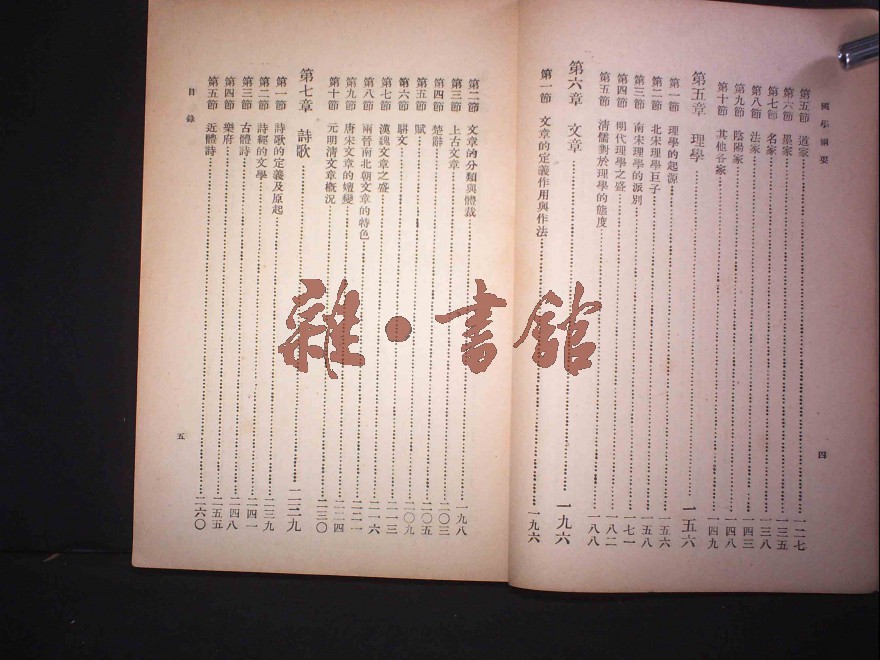 國學綱要
第五節　道家……一二七
第六節　墨家……一三五
第七節　名家……一三八
第八節　法家……一四三
第九節　陰陽家……一四八
第十節　其他各家……一四九
第五章　理學……一五六
第一節　理學的起源……一五六
第二節　北宋理學巨子……一五八
第三節　南宋理學的派別……一七一
第四節　明代理學之盛……一八二
第五節　清儒對於理學的態度……一八八
第六章　文章……一九六
第一節　文章的定義作用與作法……一九六
四
第二節　文章的分類與體裁……一九八
第三節　上古文章……二〇三
第四節　楚辭……二〇五
第五節　賦……二〇九
第六節　駢文……二一三
第七節　漢魏文章之盛……二一六
第八節　兩晉南北朝文章的特色……二二一
第九節　唐宋文章的嬗變……二二四
第十節　元明清文章概況……二三〇
第七章　詩歌……二三九
第一節　詩歌的定義及原起……二三九
第二節　詩經的文學……二四一
第三節　古體詩……二四八
第四節　樂府……二五五
第五節　近體詩……二六〇
目錄
五
雜•書館